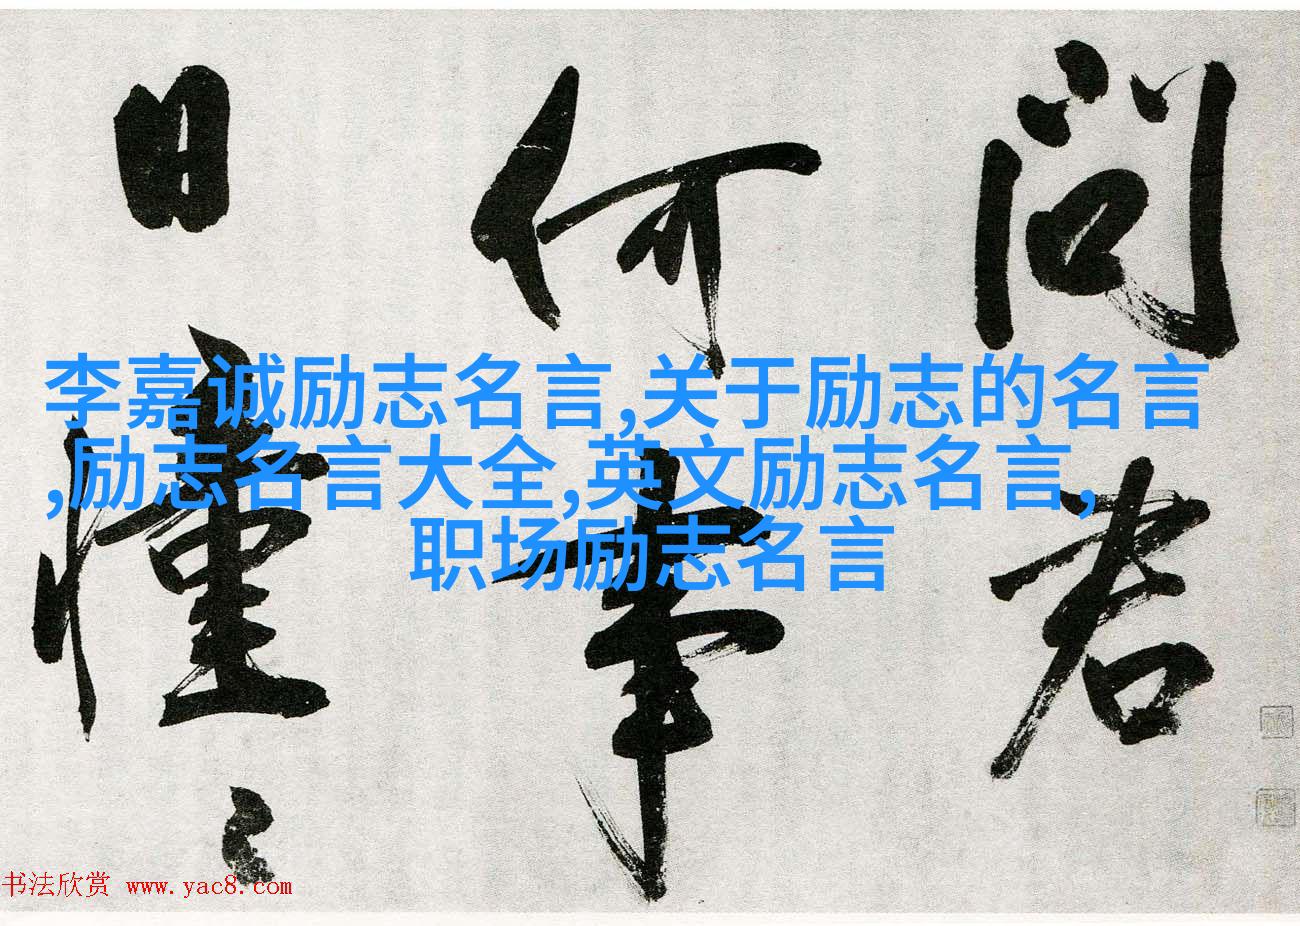 问君
何事
日憧々
李嘉诚励志名言,关于励志的名言
,励志名言大全,英文励志名言,
职场励志名言
书法欣赏 www.yac8.com